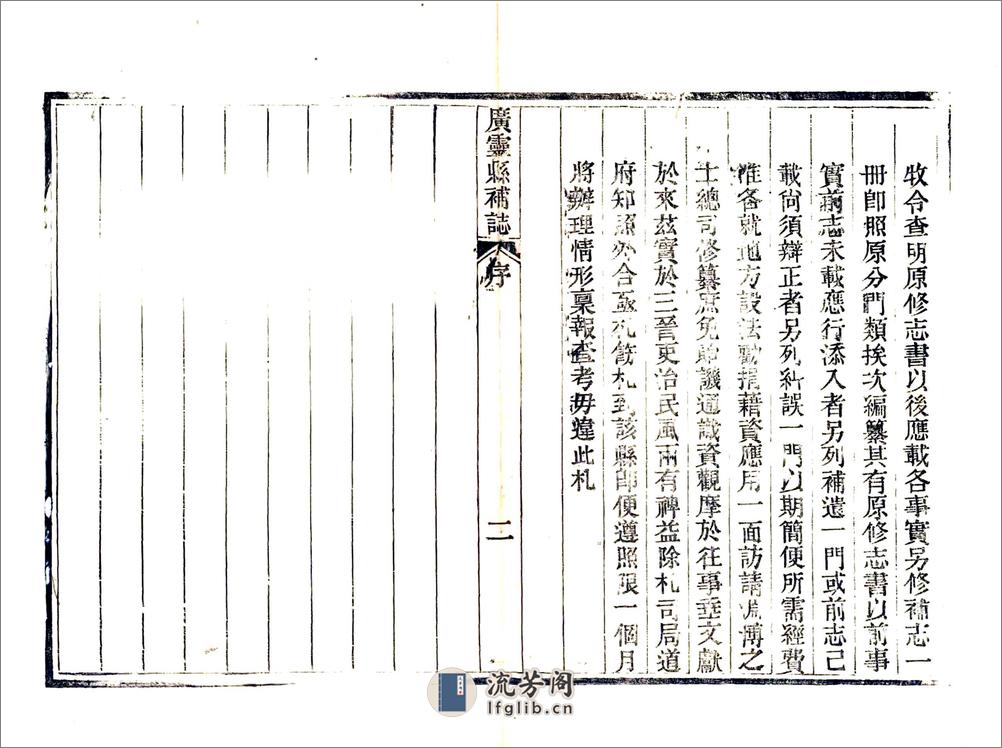 牧令查明原修志書以後應載各事實另修補志一
冊卽照原分門類挨次編纂其有原修志書以前事
實前志未載應行添入者另列補遺一門或前志已
載尙須辯正者另列糾誤一門以期簡便所需經費
准各就地方設法勸捐藉資應用一面訪請淹博之
士總司修纂庶免譏通識資觀摩於往事垂文獻
於來茲實於三晉吏治民風兩有裨益除札司局道
府知照外合亟札飭札到該縣卽便遵照限一個月
將辦理情形稟報查考毋違此札
廣靈縣補誌
序
二
流芳阁
lfglib.cn